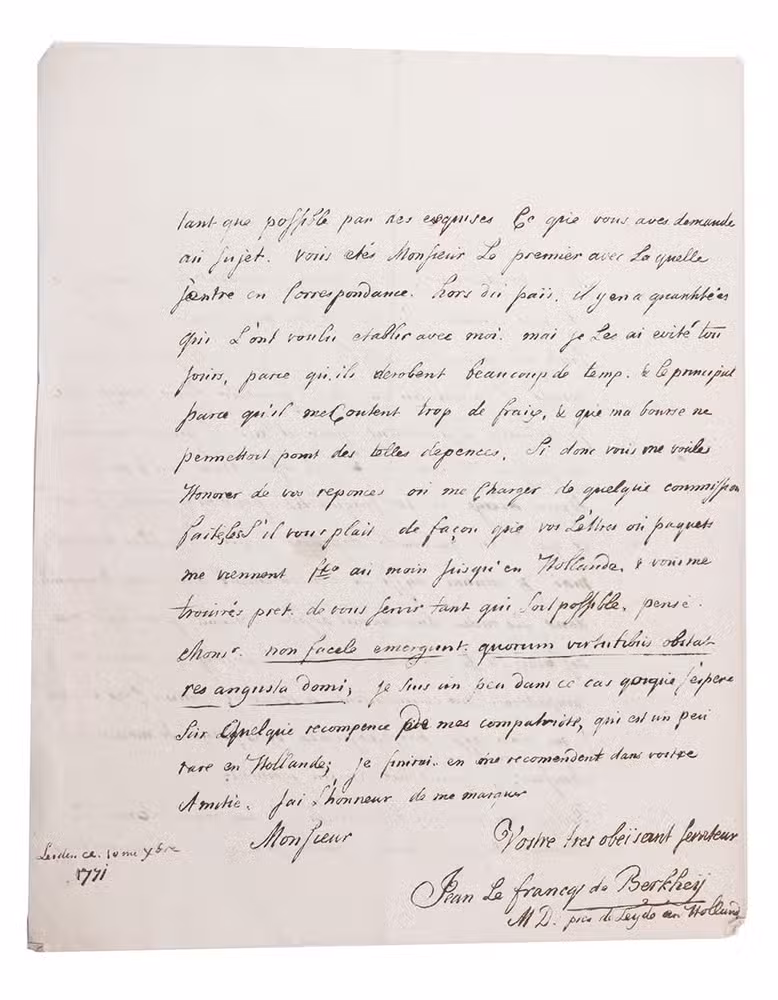 tant que possible par des esquises Ce que vous aves demande
au sujet. vous etés Monsieur Le premier avec La quelle
j'entre en Correspondance. hors du païs. il y en a quantitées
qui L'ont voulu etablir avec moi. mai je Les ai evité tou
jours, parce qu'ils derobent beaucoup de temp. & le principal
parce qu'il me Coutent trop de fraix, & que ma bourse ne
permettoit point des telles depences. Si donc vous me voulés
Honorer de vos reponces ou me Charger de quelque commission
faiteles S'il vous plait de façon que vos Lêttres ou paquets
me viennent fco au moin jusqu'en Hollande, & vous me
trouvrés pret de vous servir tant qui soit possible. pensé
Monsr. non facele emergunt. quorum virtutibus obstat
res angusta domi; je suis un peu dans ce cas quoique j'espere
Sur Quelque recompence de mes compatriote, qui est un peu
rare en Hollande; je finirai en me recomendent dans vostre
Amitie. J'ai L'honneur de me marquer
Monsieur
Vostre tres obeïssant serviteur
Leiden ce 10me Xbre
1771
Jean Le francq de Berkheÿ
MD. pres de Leyde en Holland